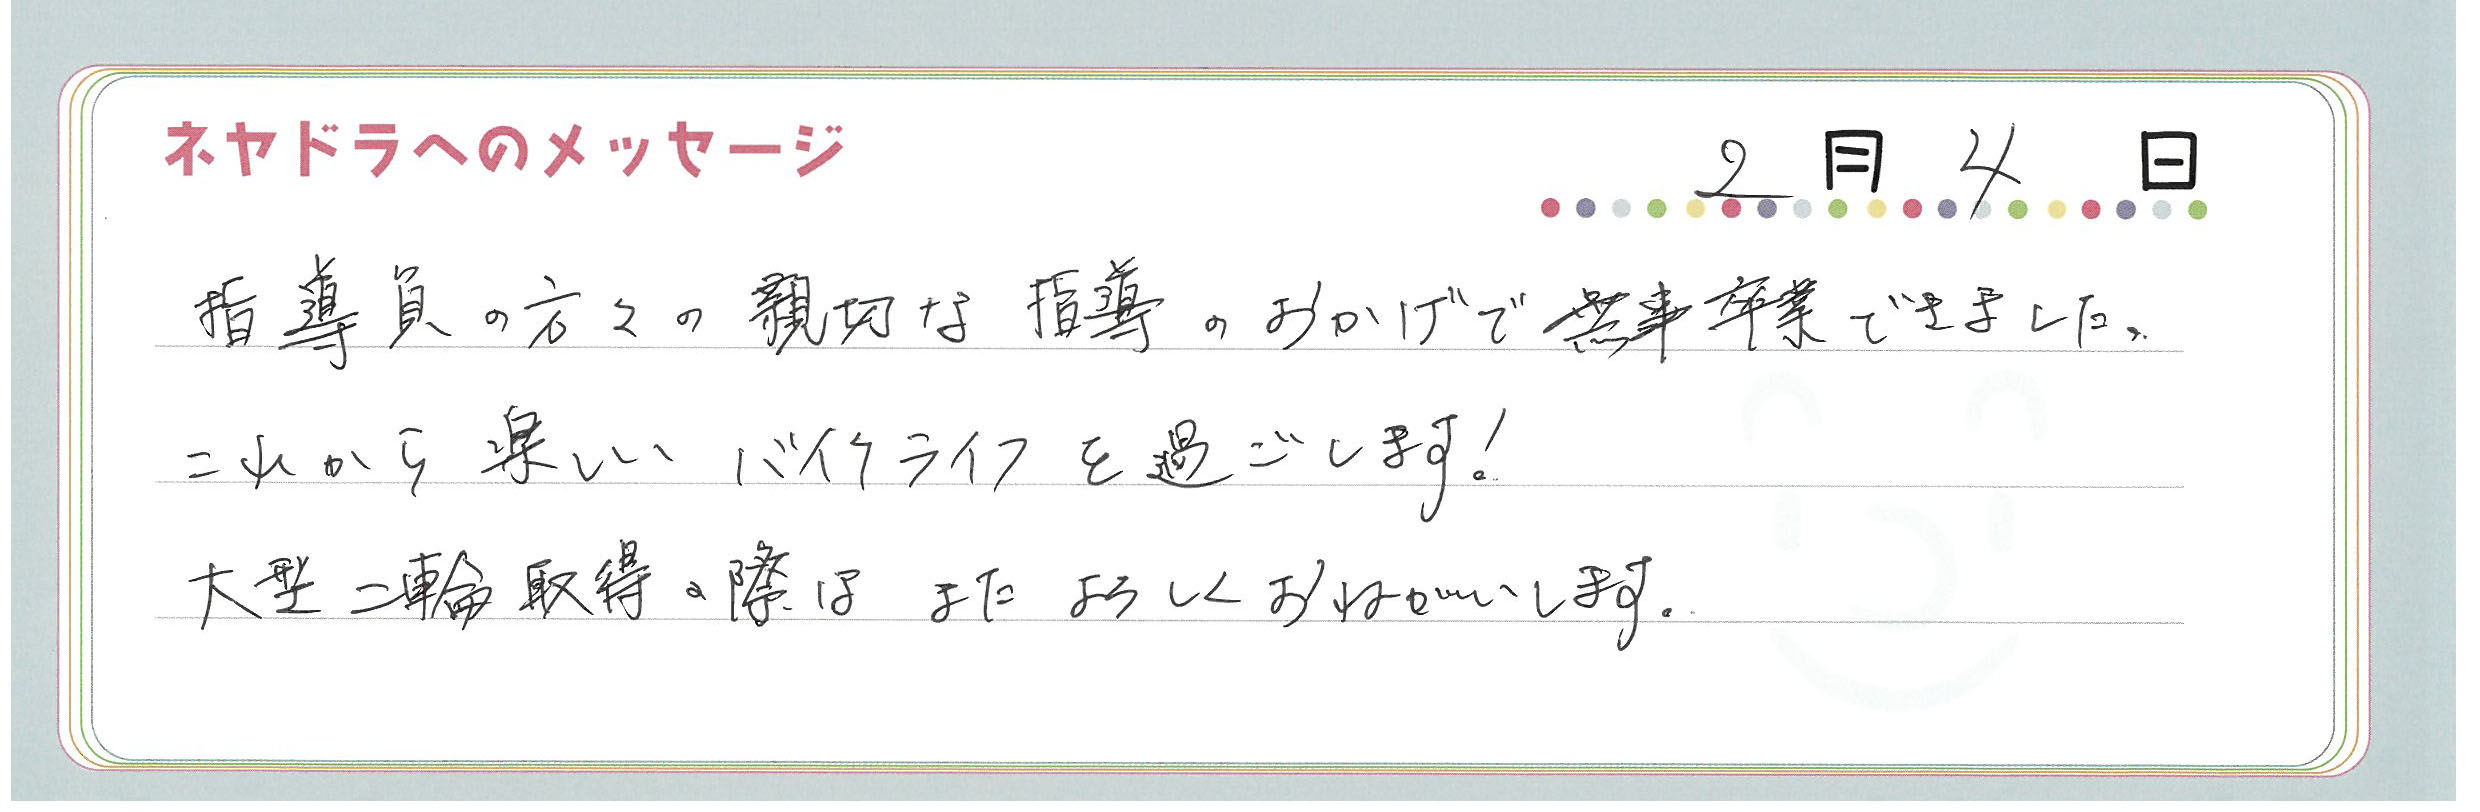 ネヤドラへのメッセージ
2月4日
指導員の方々の親切な指導のおかげで無事卒業できました。
これから楽しいバイクライフを過ごします!
大型二輪取得の際はまたよろしくおねがいします。